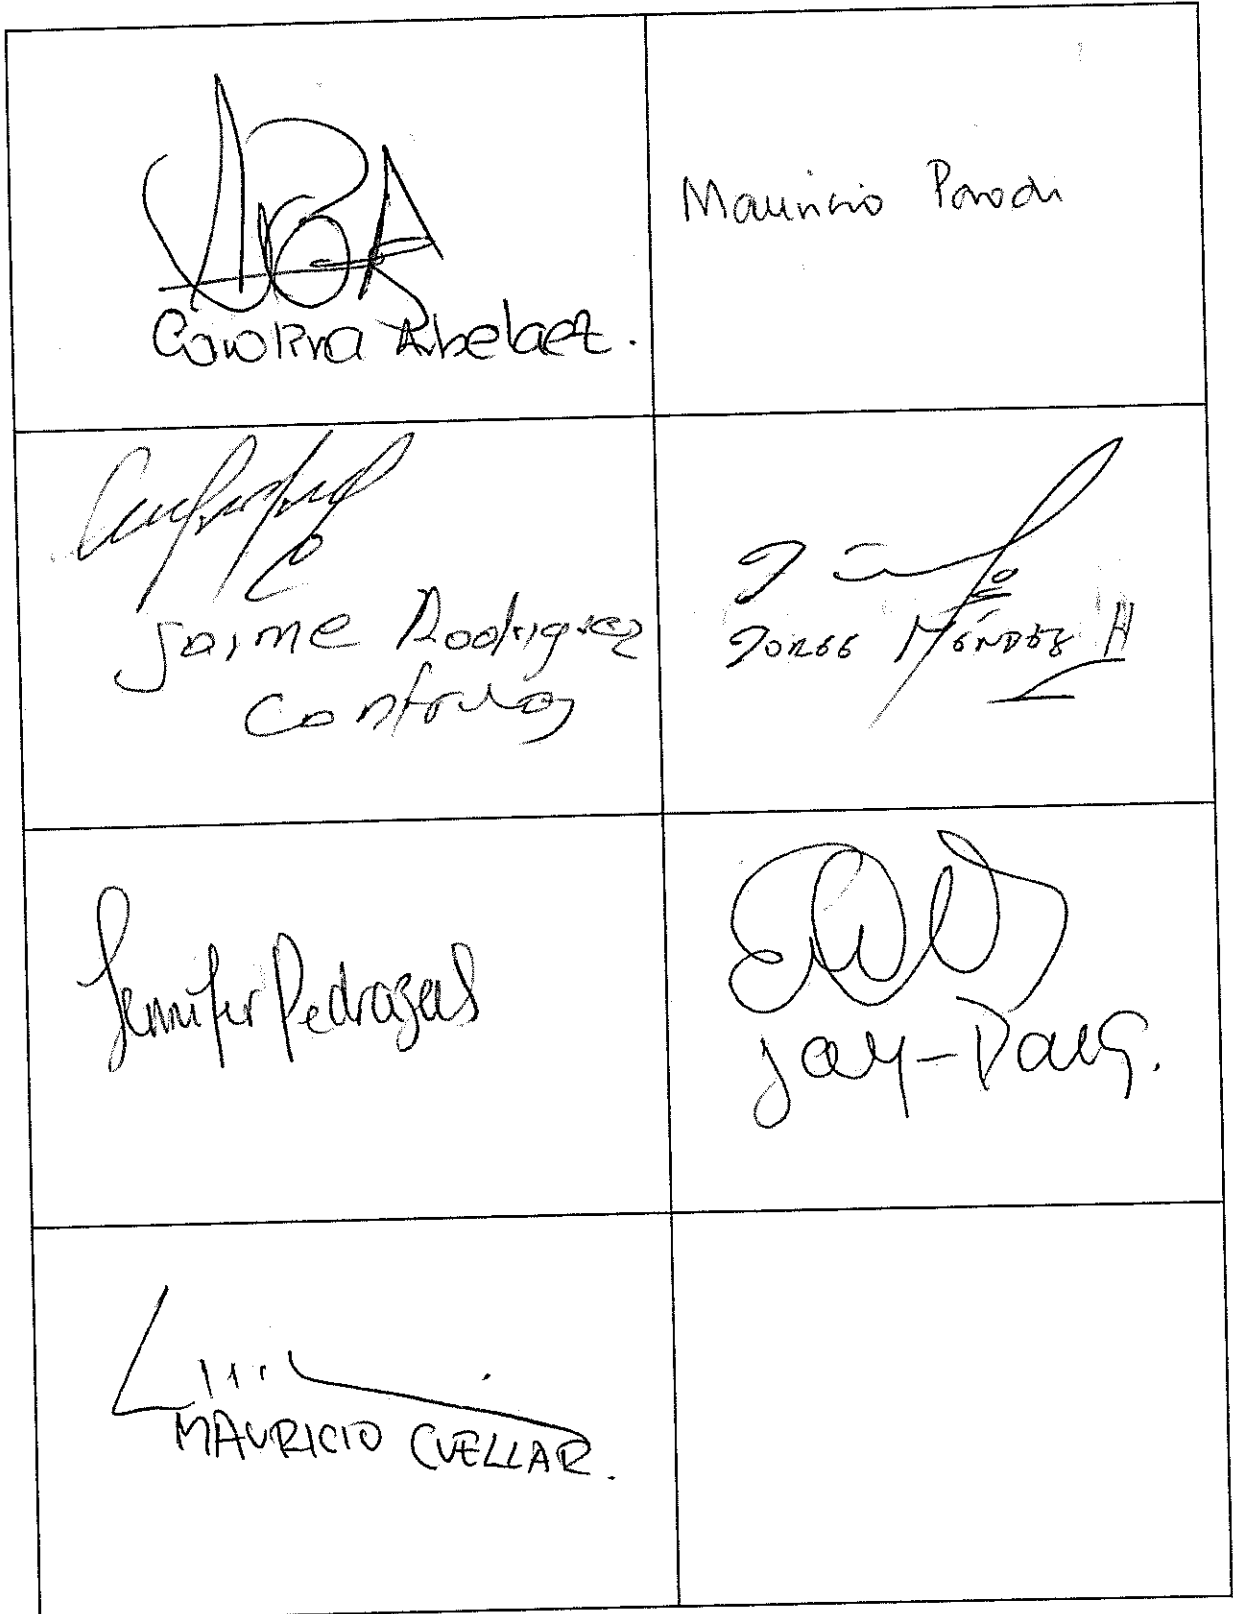 Carolina Arbelaez.
Mauricio Parodi
Jaime Rodriguez
Contreras
JORGE MÉNDEZ H
Jennifer Pedraza S
Jay-Pang.
MAURICIO CUELLAR.